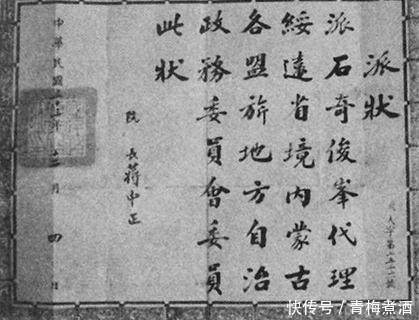 派狀
派石奇俊峯代理
綏遠省境內蒙古
各盟旂地方自治
政務委員會委員
此狀
院長蔣中正
中華民國 年 月四日
快传号/青梅煮酒